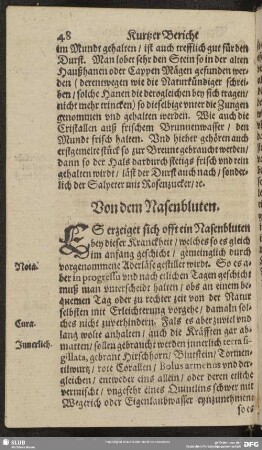 48 Kurtzer Bericht
im Mundt gehalten / ist auch trefflich gut für den
Durst. Man lobet sehr den Stein so in der alten
Haußhanen oder Cappen Mägen gefunden wer-
den / derentwegen wie die Naturkündiger schrei-
ben / solche Hanen die derogleichen bey sich tragen /
nicht mehr trincken) so dieselbige vnter die Zungen
genommen vnd gehalten werden. Wie auch die
Cristallen auß frischem Brunnenwasser / den
Mundt frisch halten. Vnd hieher gehören auch
erstgemelte stück so zur Breune gebraucht werden /
dann so der Hals dardurch stetigs frisch vnd rein
gehalten wirdt / läst der Durst auch nach / sonder-
lich der Salpeter mit Rosenzucker / ꝛc.
Von dem Nasenbluten.
ES erzeiget sich offt ein Nasenbluten
bey dieser Kranckheit / welches so es gleich
im anfang geschicht / gemeinglich durch
Nota.
vorgenommene Aderlässe gestillet wirdt. So es a-
ber in progressu vnd nach etlichen Tagen geschicht
muß man vnterscheid halten / obs an einem be-
quemen Tag oder zu rechter zeit von der Natur
selbsten mit Erleichterung vorgehe / damaln sol-
Cura.
ches nicht zuverhindern. Fals es aber zuviel vnd
lang wolte anhalten / auch die Kräfften gar ab-
Innerlich.
matten / sollen gebraucht werden innerlich terra si-
gillata, gebrant Hirschhorn / Blutstein / Tormen-
tilwurtz / rote Corallen / Bolus armenus vnd der-
gleichen / entweder eins allein / oder deren etliche
vermischt / vngefehr eines Quintlins schwer mit
Wegerich oder Eigenlaubwasser eynzunehmens
so es